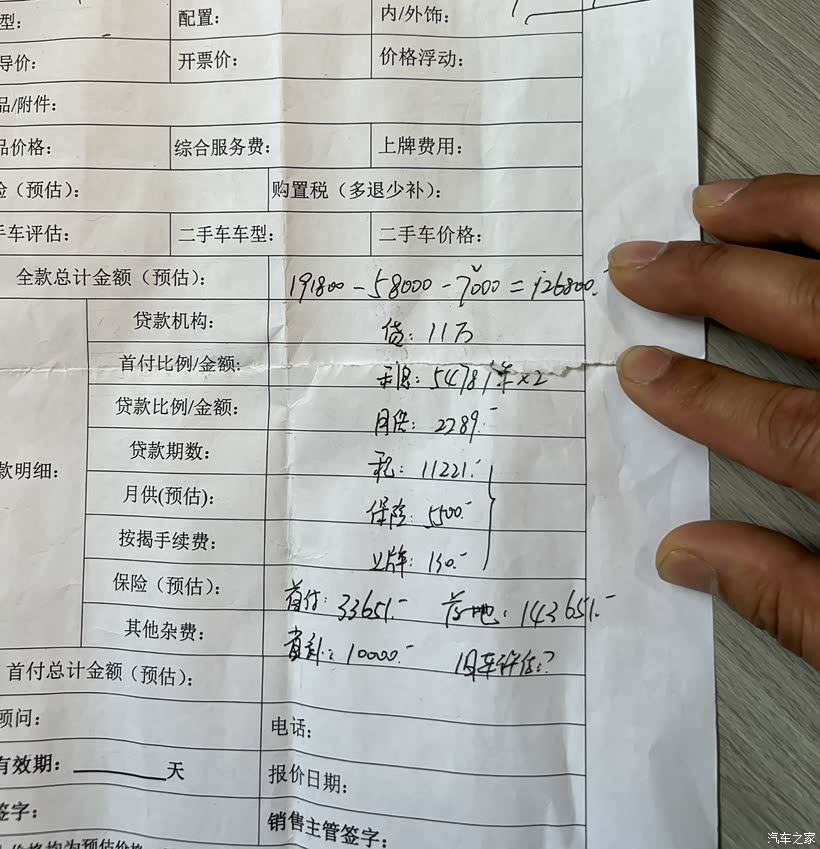 型： 配置： 内/外饰：
导价： 开票价： 价格浮动：
品/附件：
品价格： 综合服务费： 上牌费用：
险（预估）： 购置税（多退少补）：
手车评估： 二手车车型： 二手车价格：
全款总计金额（预估）： 191800-58000-7000=126800.-
贷款机构： 贷：11万
首付比例/金额： 利息：5478/年×2
贷款比例/金额： 月供：2289.-
贷款期数： 税：11221.-
款明细：
月供(预估)： 保险：5500.-
按揭手续费： 上牌：130.-
保险（预估）： 首付：33651.- 落地：143651.-
其他杂费： 10000.- 旧车评估？
首付总计金额（预估）：
顾问： 电话：
有效期：________天 报价日期：
签字： 销售主管签字：
价格均为预估价格
汽车之家